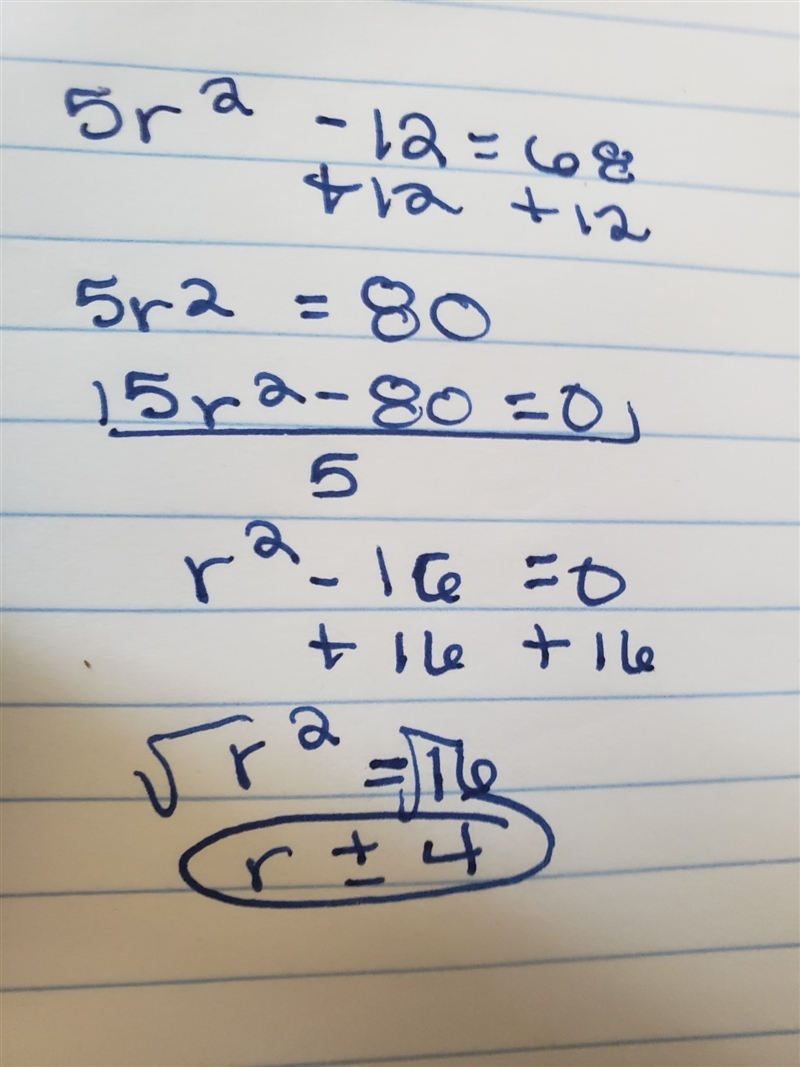 5r² - 12 = 68
+12 +12
5r2 = 80
5r² - 80 = 0
5
r² - 16 = 0
+ 16 + 16
√r² = √16
r ± 4